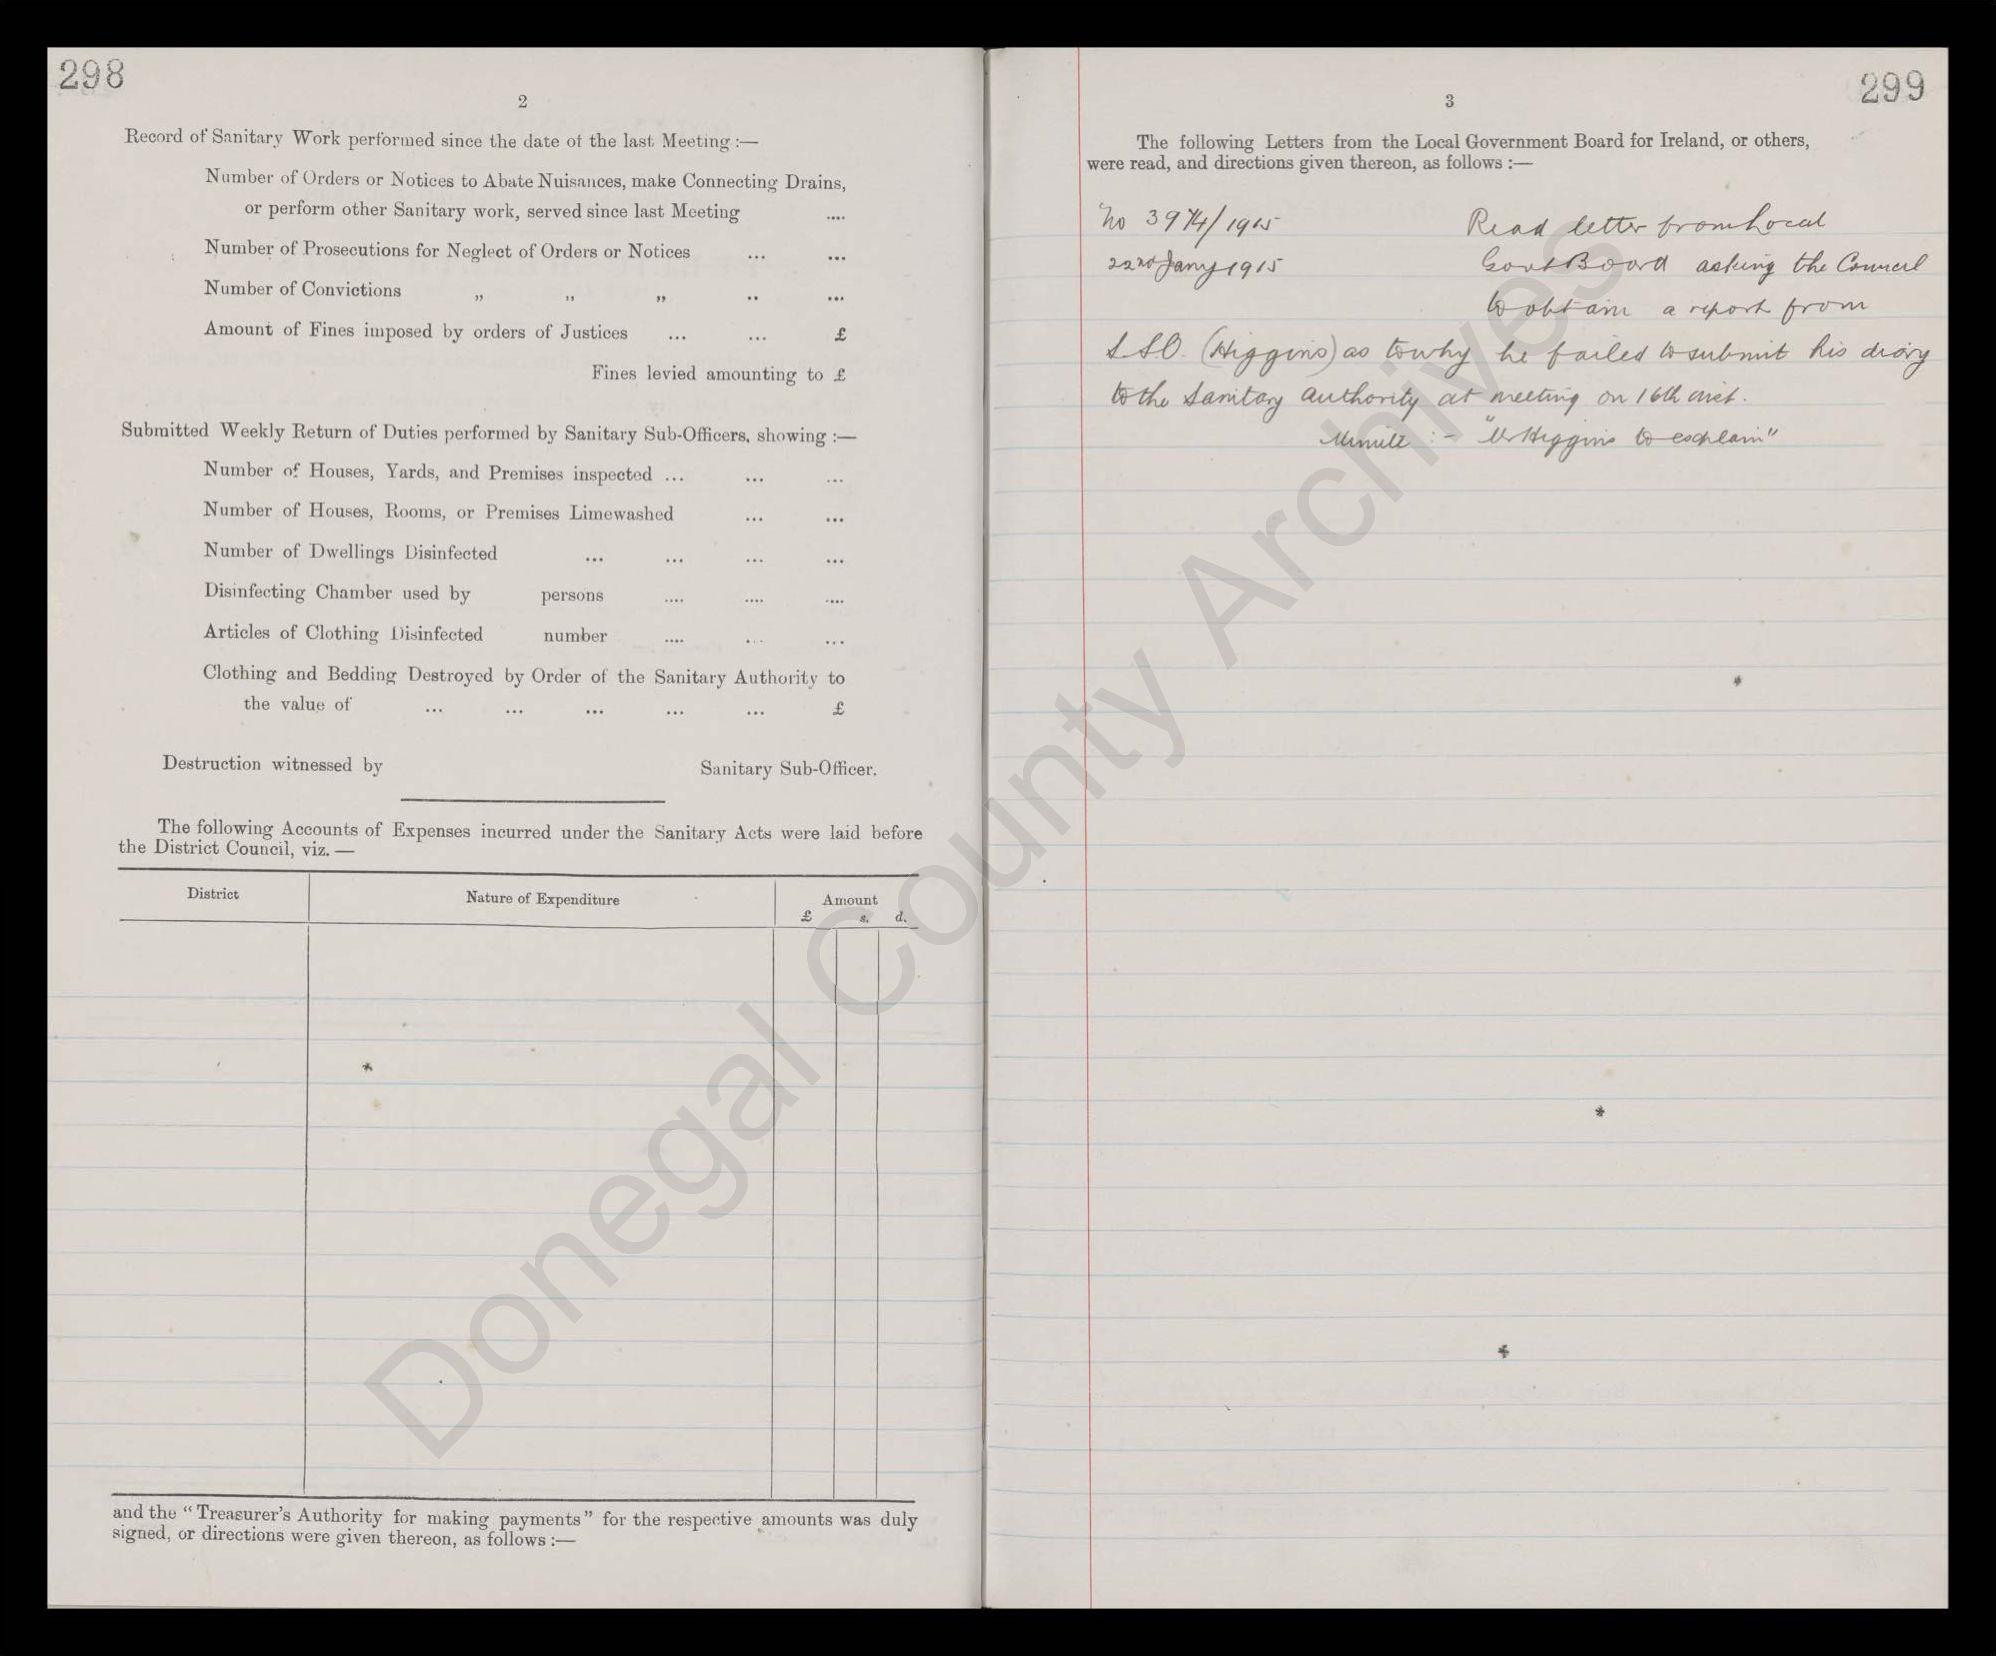 298
2
Record of Sanitary Work performed since the date of the last Meeting :—
Number of Orders or Notices to Abate Nuisances, make Connecting Drains,
or perform other Sanitary work, served since last Meeting ....
Number of Prosecutions for Neglect of Orders or Notices ... ...
Number of Convictions „ „ „ .. ...
Amount of Fines imposed by orders of Justices ... ... £
Fines levied amounting to £
Submitted Weekly Return of Duties performed by Sanitary Sub-Officers, showing :—
Number of Houses, Yards, and Premises inspected ... ... ...
Number of Houses, Rooms, or Premises Limewashed ... ...
Number of Dwellings Disinfected ... ... ... ...
Disinfecting Chamber used by persons .... .... ....
Articles of Clothing Disinfected number .... ... ...
Clothing and Bedding Destroyed by Order of the Sanitary Authority to
the value of ... ... ... ... ... £
Destruction witnessed by Sanitary Sub-Officer.
The following Accounts of Expenses incurred under the Sanitary Acts were laid before
the District Council, viz. —
District Nature of Expenditure Amount
£ s. d.
and the "Treasurer's Authority for making payments" for the respective amounts was duly
signed, or directions were given thereon, as follows :—
299
3
The following Letters from the Local Government Board for Ireland, or others,
were read, and directions given thereon, as follows :—
No 3974/1915 Read letter from Local
22nd Jany 1915 Govt Board asking the Council
to obtain a report from
S.S.O. (Higgins) as to why he failed to submit his diary
to the Sanitary Authority at meeting on 16th inst.
Minute :- "Mr Higgins to explain"
Donegal County Archives